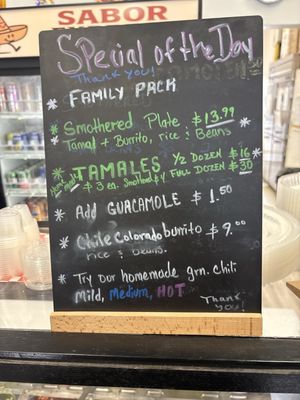 SABOR
Special of the Day
Thank you!
FAMILY PACK
Smothered Plate $13.99
Tamal + Burrito, rice & Beans
TAMALES ½ DOZEN $16
$3 ea. Smothered FULL DOZEN $30
Add GUACAMOLE $1.50
Chile Colorado burrito $9.00
rice & beans.
Try our homemade grn. chili
Mild, Medium, HOT
Thank
you!